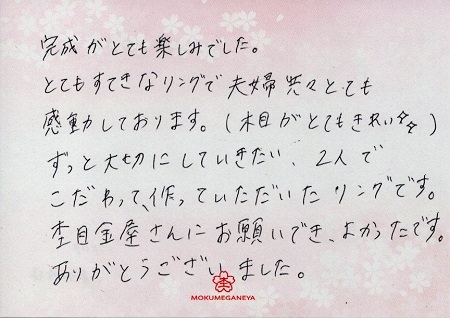 完成がとても楽しみでした。
とてもすてきなリングで夫婦共々とても
感動しております。(木目がとてもきれい☆☆)
ずっと大切にしていきたい、2人で
こだわって、作っていただいたリングです。
杢目金屋さんにお願いでき、よかったです。
ありがとうございました。
MOKUMEGANEYA